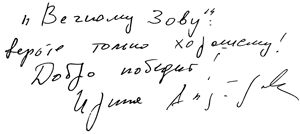 "Вечному Зову":
верьте только хорошему!
Добро победит!
Ирина